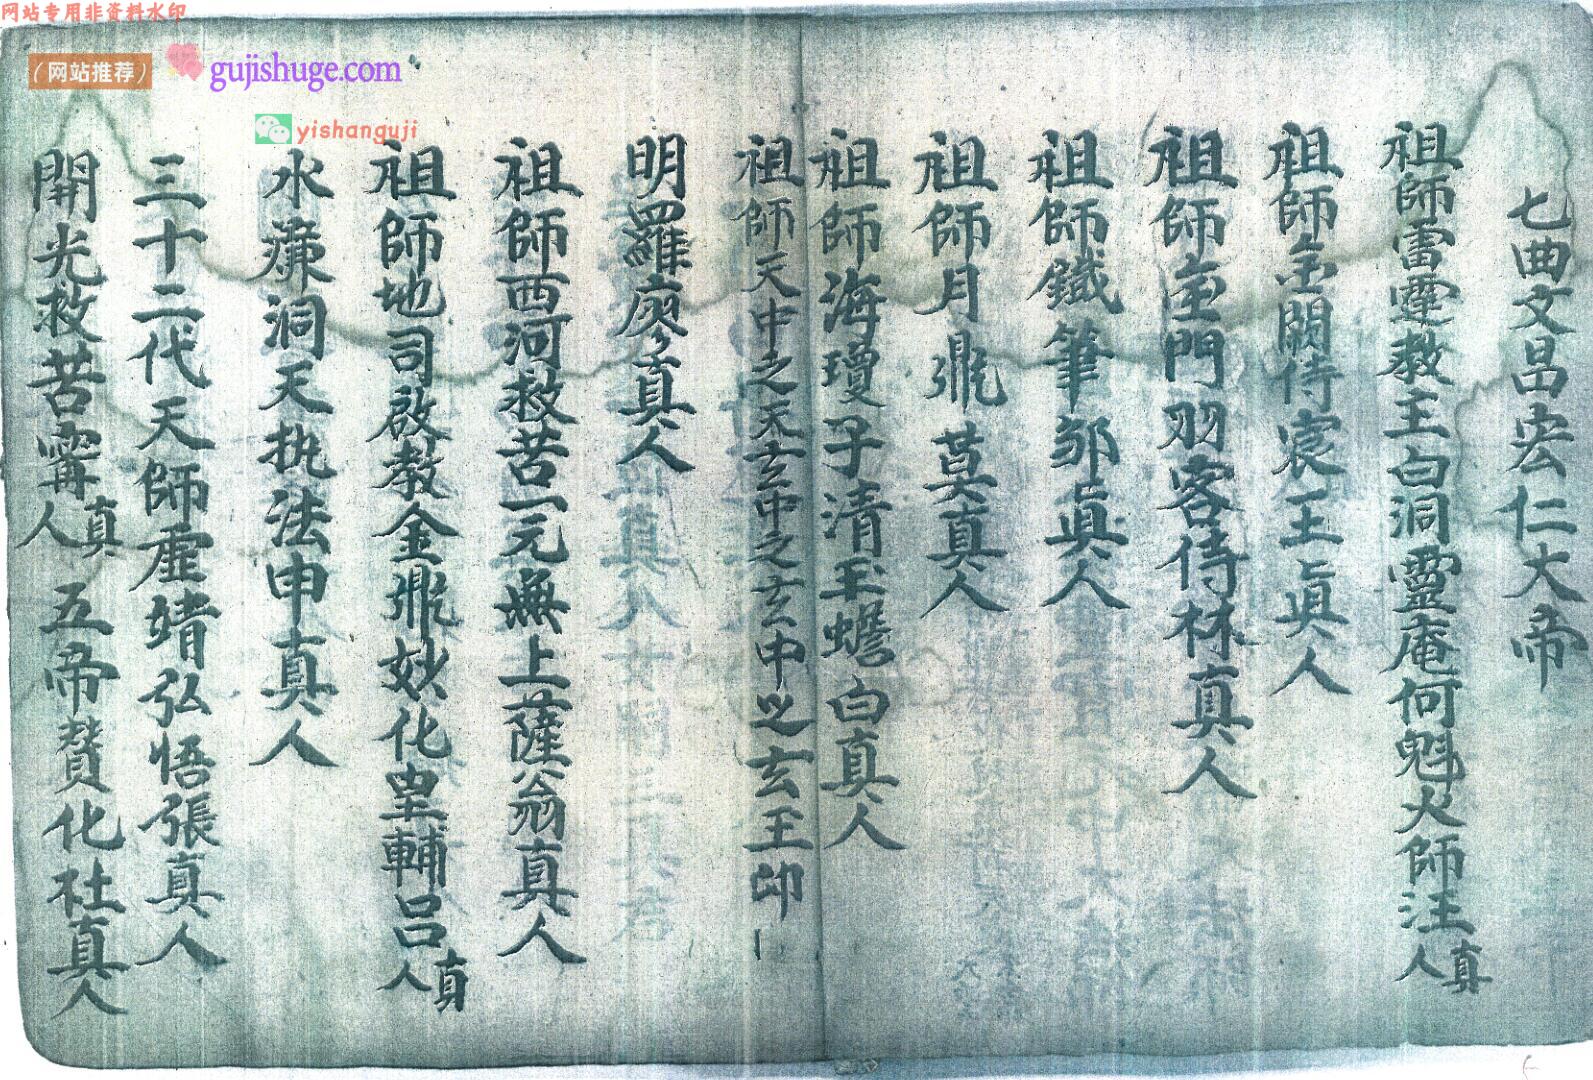 网站专用非资料水印
(网站推荐)
gujishuge.com
yishanguji
七曲文昌宏仁大帝
祖師雷霆教主白洞靈庵何魁火師汪真人
祖師玉闕侍宸王真人
祖師金門羽客侍林真人
祖師鐵筆邹真人
祖師月鼎莫真人
祖師海瓊子清玉蟾白真人
祖師天中之天玄中之玄中之玄王
明羅廖真人
祖師西河救苦一元無上薩翁真人
祖師地司啟教金鼎妙化皇輔吕真人
水濂洞天执法申真人
三十二代天師虚靖弘悟張真人
開光救苦甯真人 五帝贊化社真人